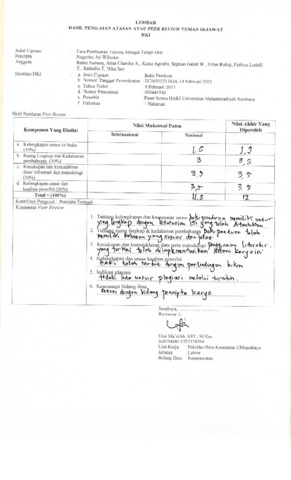 LEMBAR
HASIL PENILAIAN ATASAN ATAU PEER REVIEW TEMAN SEJAWAT
HKI
Judul Ciptaan : Cara Pembuatan Tepung Sebagai Terapi
Pencipta : Nugroho Ari Wibowo
Anggota
Identitas HKI : a. Jenis Ciptaan : Buku Panduan
b. Nomor/ Tanggal Permohonan : 14 Februari 2023
c. Tahun Terbit : Februari 2023
d. Nomor Pencatatan
e. Penerbit : Pusat Sentra HAKI Universitas Muhammadiyah Surabaya
f. Halaman : Halaman
Hasil Penilaian Peer Review
Komponen Yang Dinilai Nilai Maksimal Poten Nilai Akhir Yang Diperoleh
Internasional Nasional
a. Kelengkapan unsur isi buku (10%) 1,5 1,5
b. Ruang Lingkup dan Kedalaman pembahasan (30%) 3 3,5
c. Kecukupan dan kemutahiran data/ informasi dan metodologi (30%) 3,5 3,5
d. Kelengkapan unsur dan kualitas penerbit (30%) 3,5 3,5
Total = (100%) 11,5 12
Kontribusi Pengusul : Pencipta Tunggal
Komentar Peer Review
1. Tentang kelengkapan dan kesesuaian unsur Buku panduan memiliki unsur
yang lengkap dengan isi yang telah ditentukan
2. Tentang ruang lingkup & kedalaman pembahasan Buku panduan telah
memiliki bahasan yang sesuai dan jelas
3. Kecukupan dan kemutakhiran data serta metodologi penggunaan literatur
yang terkini telah diimplementasikan dalam karya ini
4. Kelengkapan dan unsur kualitas penerbit
HAKI telah terbit dengan perlindungan hukum
5. Indikasi plagiasi
tidak ada unsur plagiasi melalui turnitin
6. Kesesuaian bidang ilmu
Sesuai dengan bidang pencipta karya
Surabaya,
Reviewer 1,
Unit Kerja : Fakultas Ilmu Kesehatan UMSurabaya
Jabatan : Lektor
Bidang Ilmu : Keperawatan